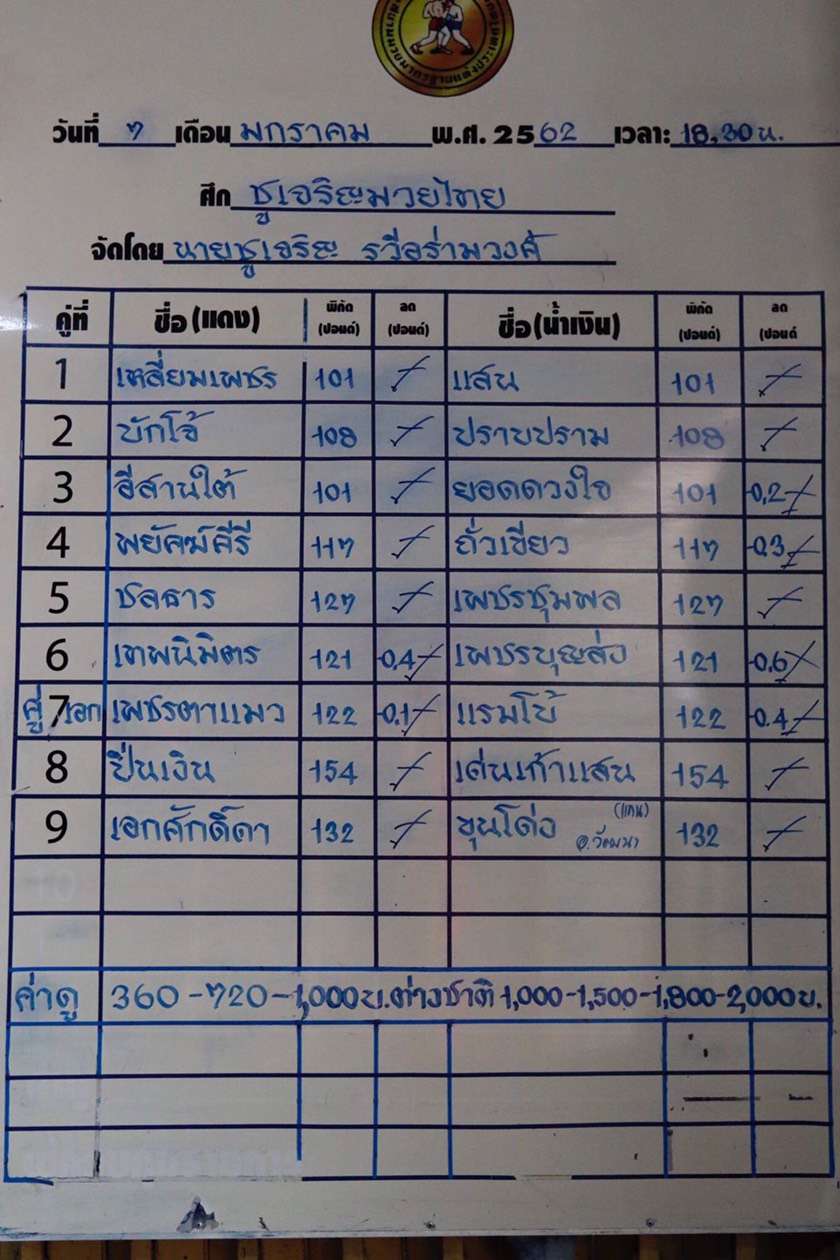 วันที่ 7 เดือน มกราคม พ.ศ. 2562 เวลา: 18.30 น.
ศึก ชูเจริญมวยไทย
จัดโดย นายชูเจริญ รวีอร่ามวงศ์
คู่ที่ ชื่อ (แดง) พิกัด (ปอนด์) ลด (ปอนด์) ชื่อ (น้ำเงิน) พิกัด (ปอนด์) ลด (ปอนด์
1 เหลี่ยมเพชร 101 แสน 101
2 บักโจ้ 108 ปราบปราม 108
3 อีสานใต้ 101 ยอดดวงใจ 101 -0.2
4 พยัคฆ์คีรี 117 ถั่วเขียว 117 -0.3
5 ชลธาร 127 เพชรชุมพล 127
6 เทพนิมิตร 121 -0.4 เพชรบุญส่ง 121 -0.6
คู่ 7 เอก เพชรตาแมว 122 -0.1 แรมโบ้ 122 -0.4
8 ปืนเงิน 154 เด่นเก้าแสน 154
9 เอกศักดิ์ดา 132 ขุนโต่อ อ.วัฒนา (แทน) 132
ค่าดู 360 - 720 - 1,000 บ. ต่างชาติ 1,000 - 1,500 - 1,800 - 2,000 บ.